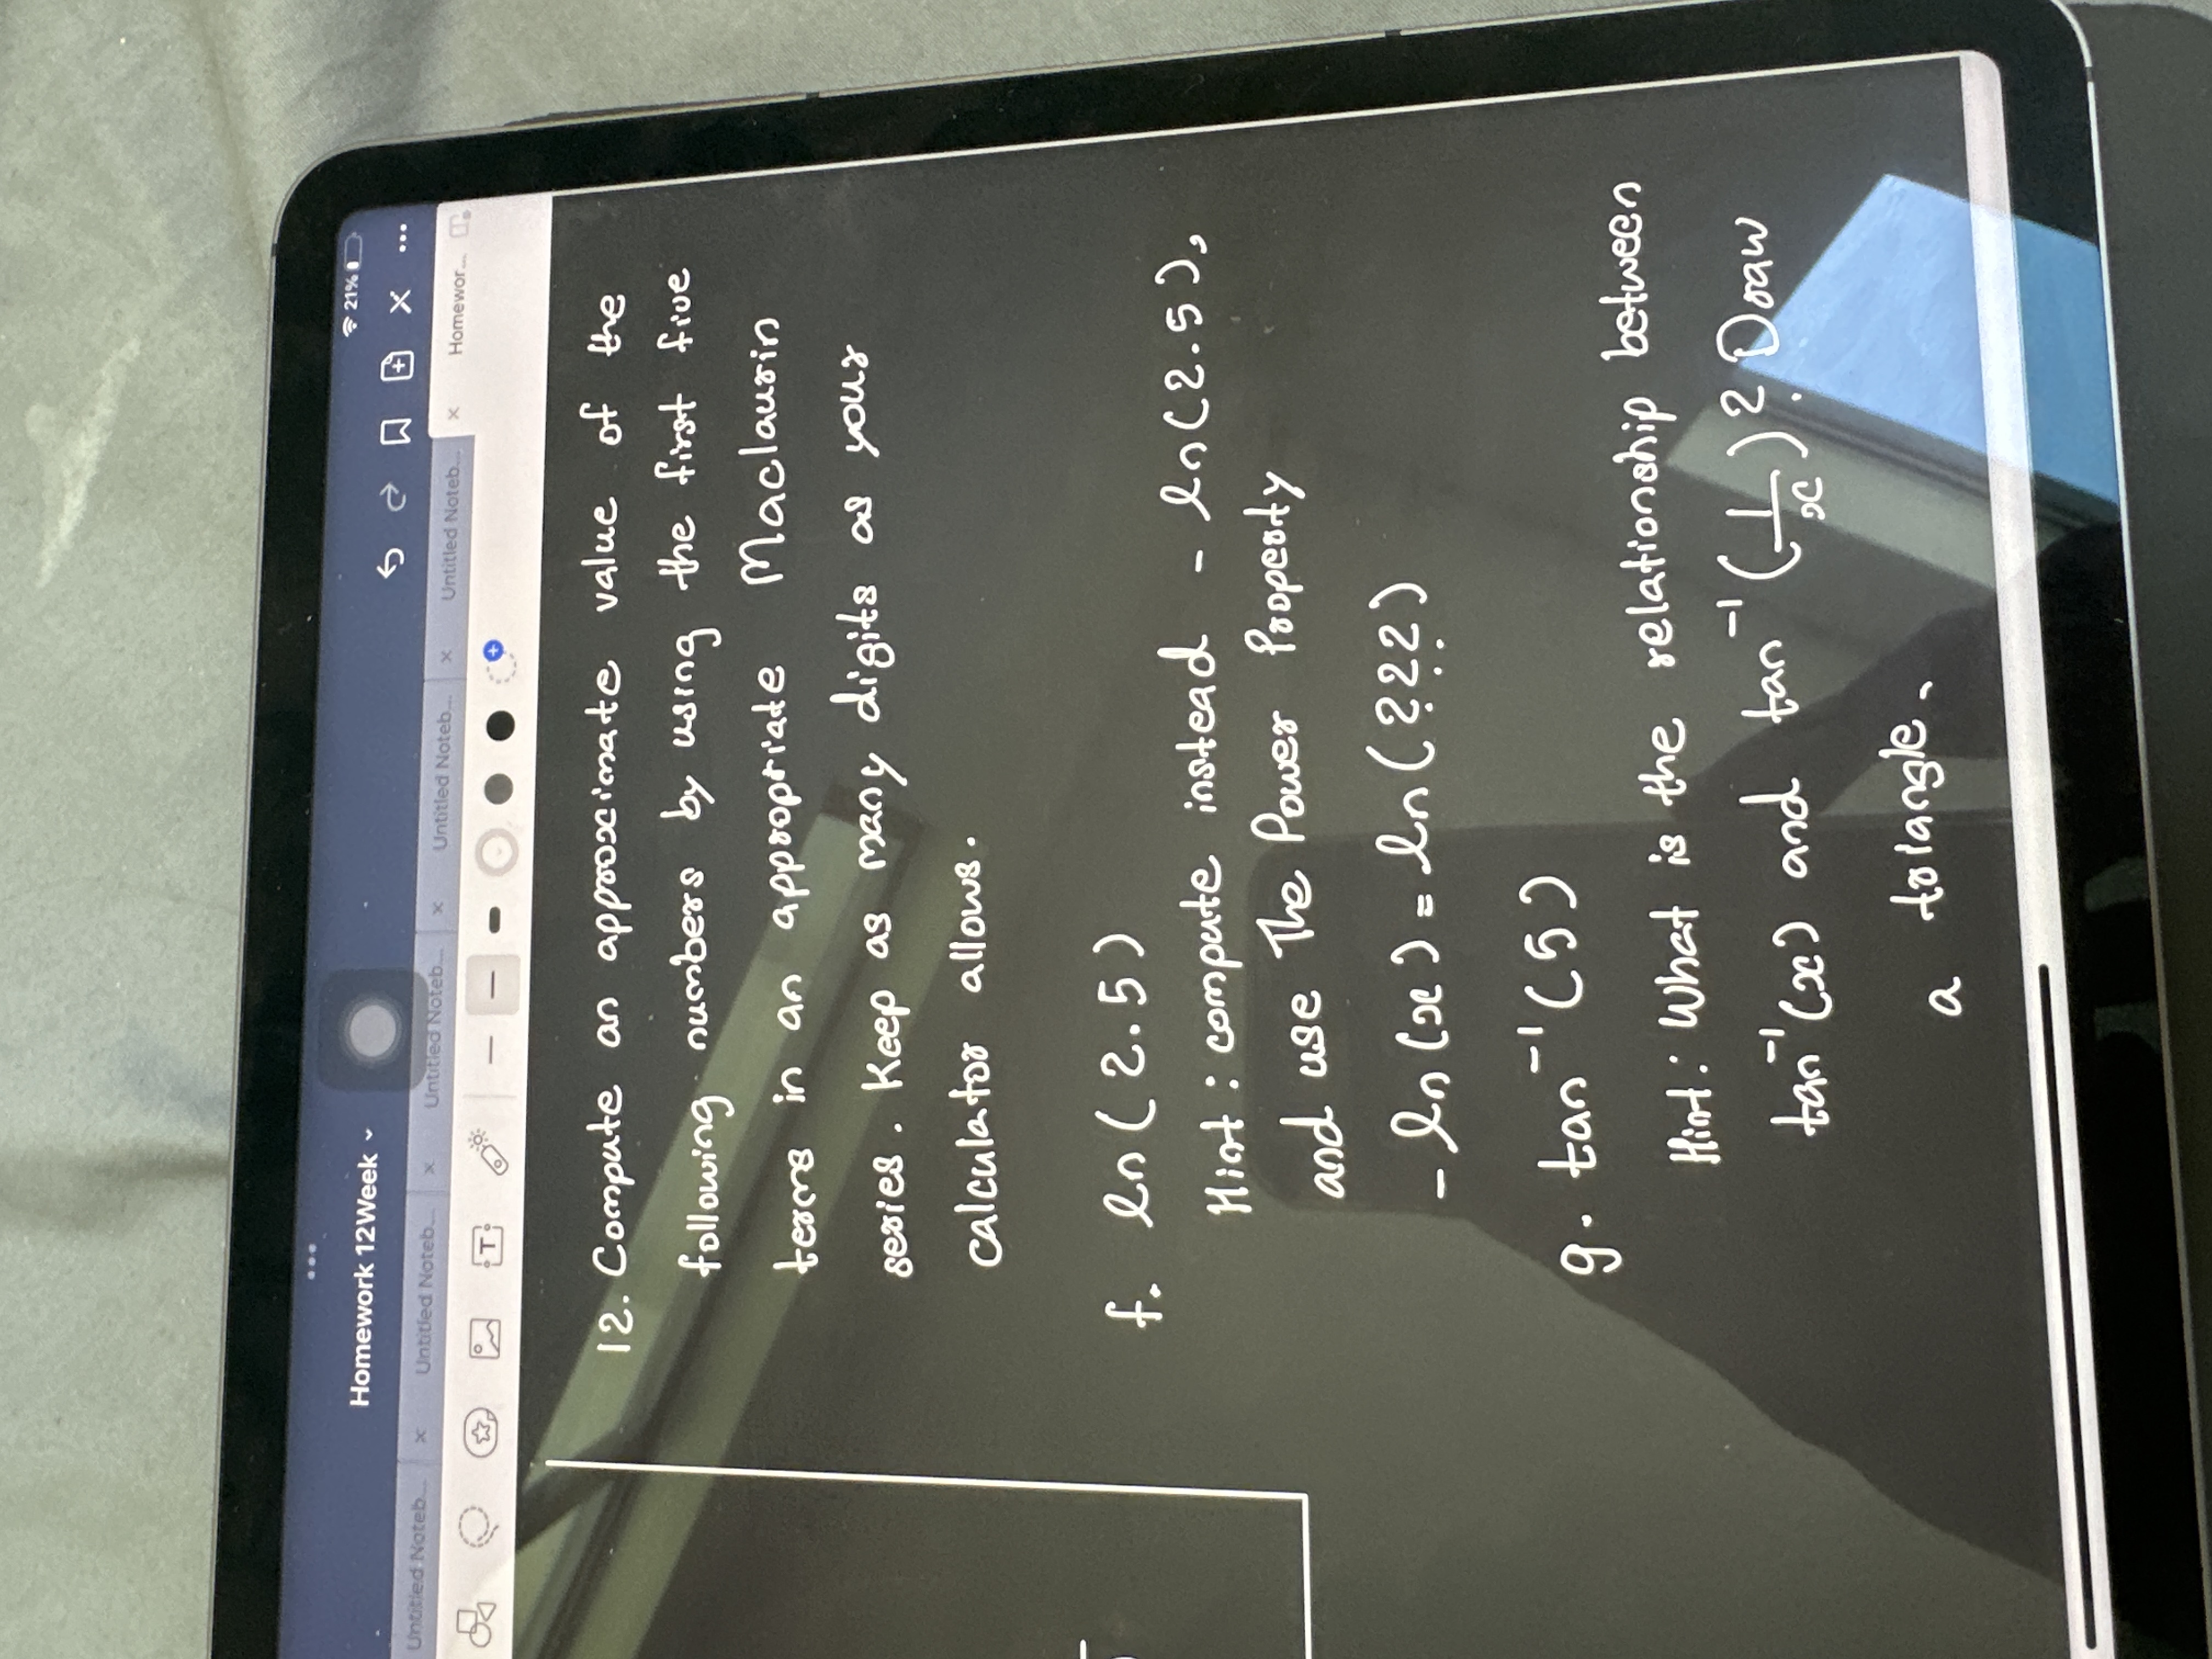 21%
Homework 12Week
Untitled Noteb...
Untitled Noteb...
Untitled Noteb...
Untitled Noteb...
Untitled Noteb...
Homewor...
12. Compute an approximate value of the
following numbers by using the first five
terms in an appropriate Maclaurin
series. Keep as many digits as your
calculator allows.
f. ln(2.5)
Hint: compute instead - ln(2.5),
and use The Power Property
- ln(x) = ln(???)
g. tan⁻¹(5)
Hint: What is the relationship between
tan⁻¹(x) and tan⁻¹(1/x)? Draw
a triangle.